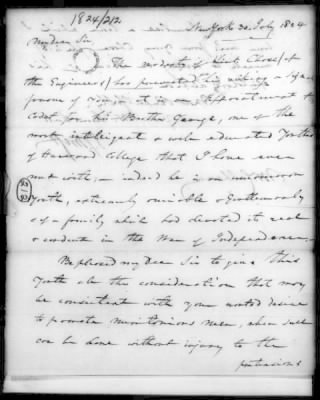 1824/212
New York 30 July 1824
My Dear Sir
The modesty of Lieut Chase/of
the Engineers/has prevented his asking a
favour of you, it is an Appointment to
Cadet for his Brother George, one of the
most intelligent & well educated Youths
of Harvard College that I have ever
met with, indeed he is an uncommon
Youth, extremely amiable & Gentlemanly
& of a family which had devoted its zeal
& conduct in the War of Independence.
Be pleased my Dear Sir to give this
Youth all the consideration that may
be consistent with your wonted desire
to promote Meritorious Men, when such
can be done without injury to the
pretensions